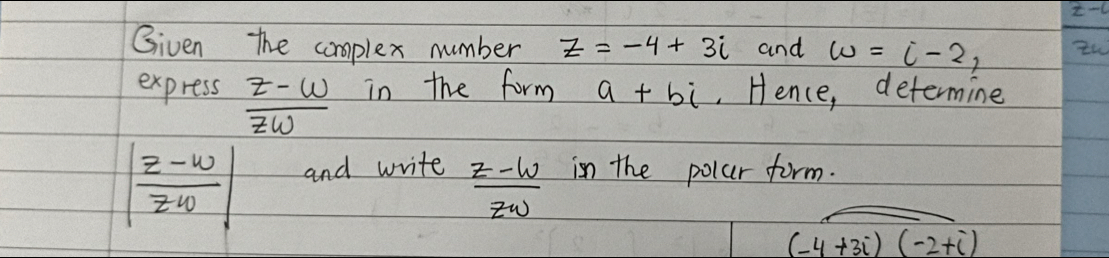 Given the complex number z = -4 + 3i and w = i - 2,
express z - w / zw in the form a + bi. Hence, determine
| z - w / zw | and write z - w / zw in the polar form.
(-4 +3i) (-2+i)
zw